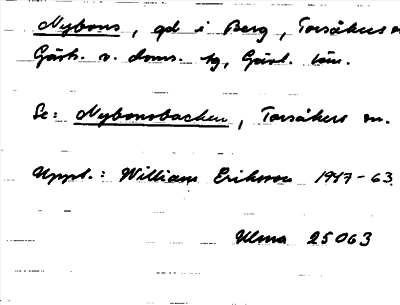 Nybons, gd i Berg, Torsåkers sn
Gästr. v. doms. tg, Gävl. län.
Se: Nybonsbacken, Torsåkers sn.
Uppt.: William Eriksson 1947-63
Ulma 25063